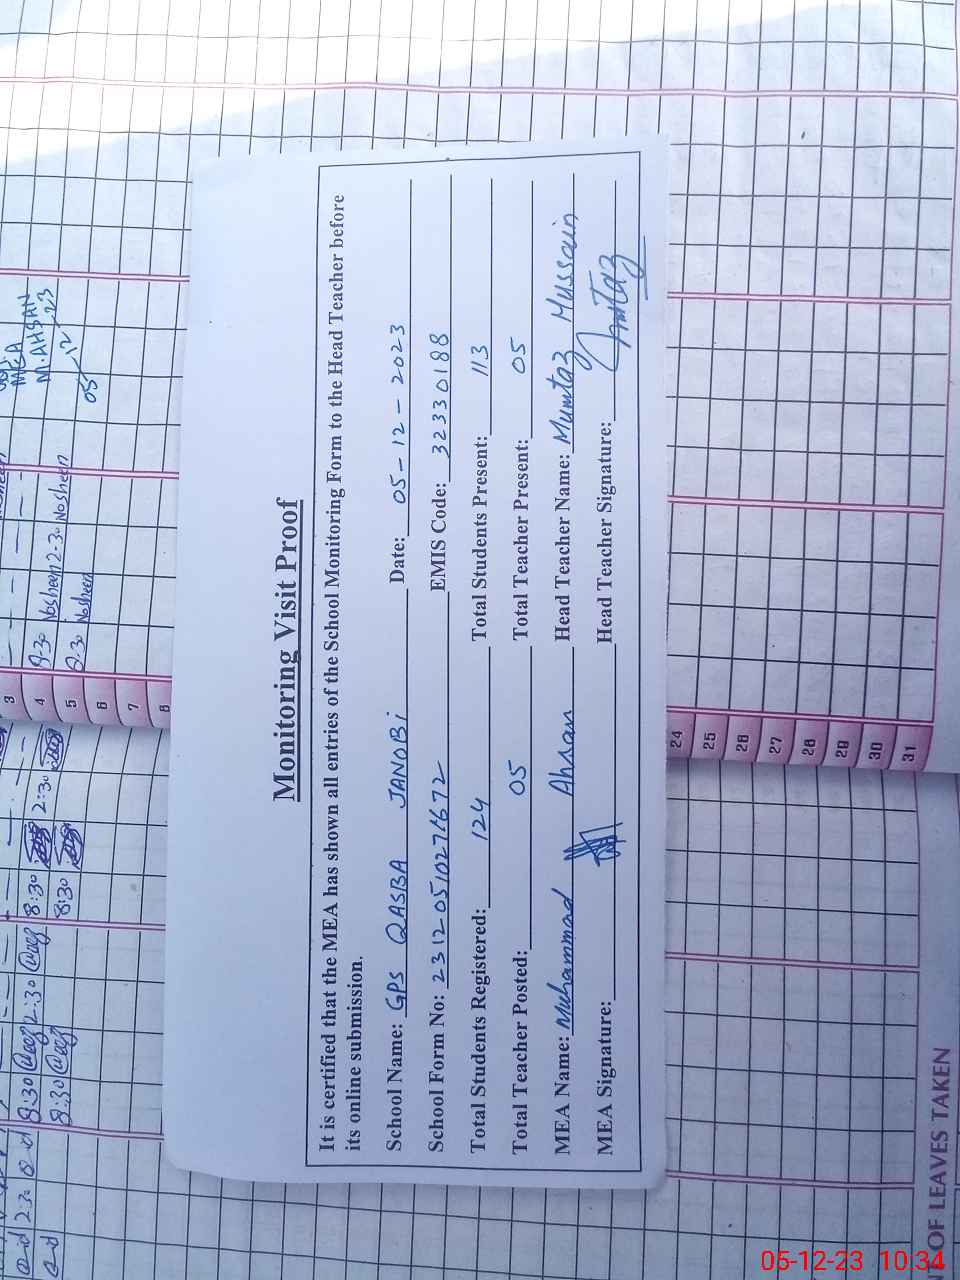 Monitoring Visit Proof
It is certified that the MEA has shown all entries of the School Monitoring Form to the Head Teacher before
its online submission.
School Name: GPS QASBA JANOBi Date: 05-12-2023
School Form No: EMIS Code: 32330188
Total Students Registered: 124 Total Students Present: 113
Total Teacher Posted: 05 Total Teacher Present: 05
MEA Name: Muhammad Ahsan Head Teacher Name: Mumtaz Hussain
MEA Signature: Head Teacher Signature: Mumtaz
MEA
M. AHSAN
05-12-23
3
4 8:30 Nosheen 2:30 Nosheen
5 8:30 Nosheen
6
7
8
8:30 2:30 8:30 2:30
8:30 8:30
24
25
26
27
28
29
30
31
OF LEAVES TAKEN
05-12-23 10:34